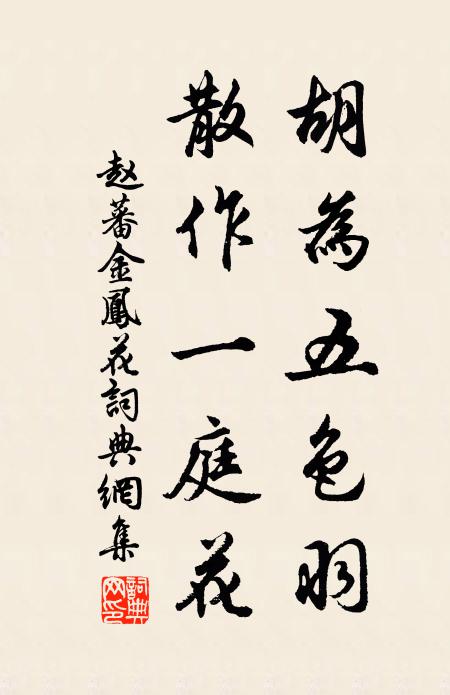 胡為五色羽
散作一庭花
赵蕃金鳳花詞典網集
詞典
网印